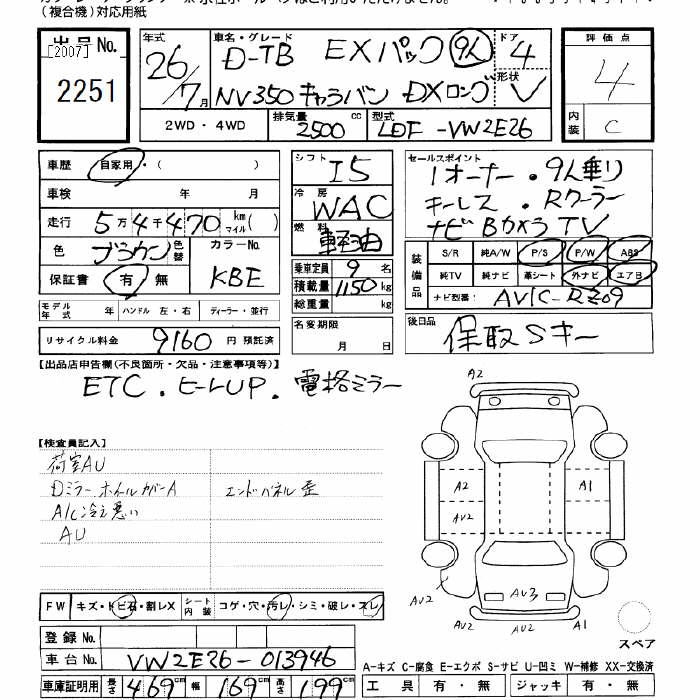 (複合機)対応用紙
出品No. [2007] 2251
年式 26/7月
車名・グレード D-TB EXパック 9人
NV350 キャラバン DXロング
ドア 4 形状 V
2WD・4WD 排気量 2500 cc 型式 LDF-VW2E26
評価点 4
内装 C
車歴 自家用・( )
車検 年 月
走行 5万4千470 km マイル( )
色 ブラウン 色替 カラーNo. KBE
保証書 有 無
モデル年式 年 ハンドル 左・右 ディーラー・並行
リサイクル料金 9160 円 預託済
シフト I5
冷房 WAC
燃料 軽油
乗車定員 9 名
積載量 1150 kg
総重量 kg
名変期限 月 日
セールスポイント
1オーナー・9人乗り
キーレス・Rクーラー
ナビ Bカメラ TV
装備品 S/R 純A/W P/S P/W ABS
純TV 純ナビ 革シート 外ナビ エアB
ナビ型番: AVIC-RZ09
後日品 保取Sキー
【出品店申告欄(不良箇所・欠品・注意事項等)】
ETC・ヒールUP・電格ミラー
【検査員記入】
荷室AU
Dミラー ホイルカバーA エンドパネル歪
A/C冷え悪い
AU
A2
A2 A1
AU2
AU2 AU3
AU2 AU2 A1
スペア
FW キズ・トビ石・割レX シート内装 コゲ・穴・汚レ・シミ・破レ・スレ
登録No.
車台No. VW2E26-013946
車庫証明用 長さ 469cm 幅 169cm 高さ 199cm
A-キズ C-腐食 E-エクボ S-サビ U-凹ミ W-補修 XX-交換済
工具 有・無 ジャッキ 有・無